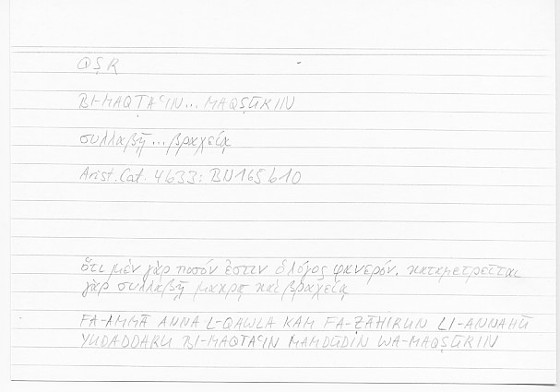 QṢR
BI-MAQṬAʿIN... MAQṢŪRIN
συλλαβῇ ... βραχείᾳ
Arist. Cat. 4b33: BN165b10
ὅτι μὲν γὰρ ποσόν ἐστιν ὁ λόγος φανερόν. καταμετρεῖται
γὰρ συλλαβῇ μακρᾷ καὶ βραχείᾳ
FA-AMMĀ ANNA L-QAWLA KAM FA-ẒĀHIRUN LI-ANNAHŪ
YUQADDARU BI-MAQṬAʿIN MAMDŪDIN WA-MAQṢŪRIN